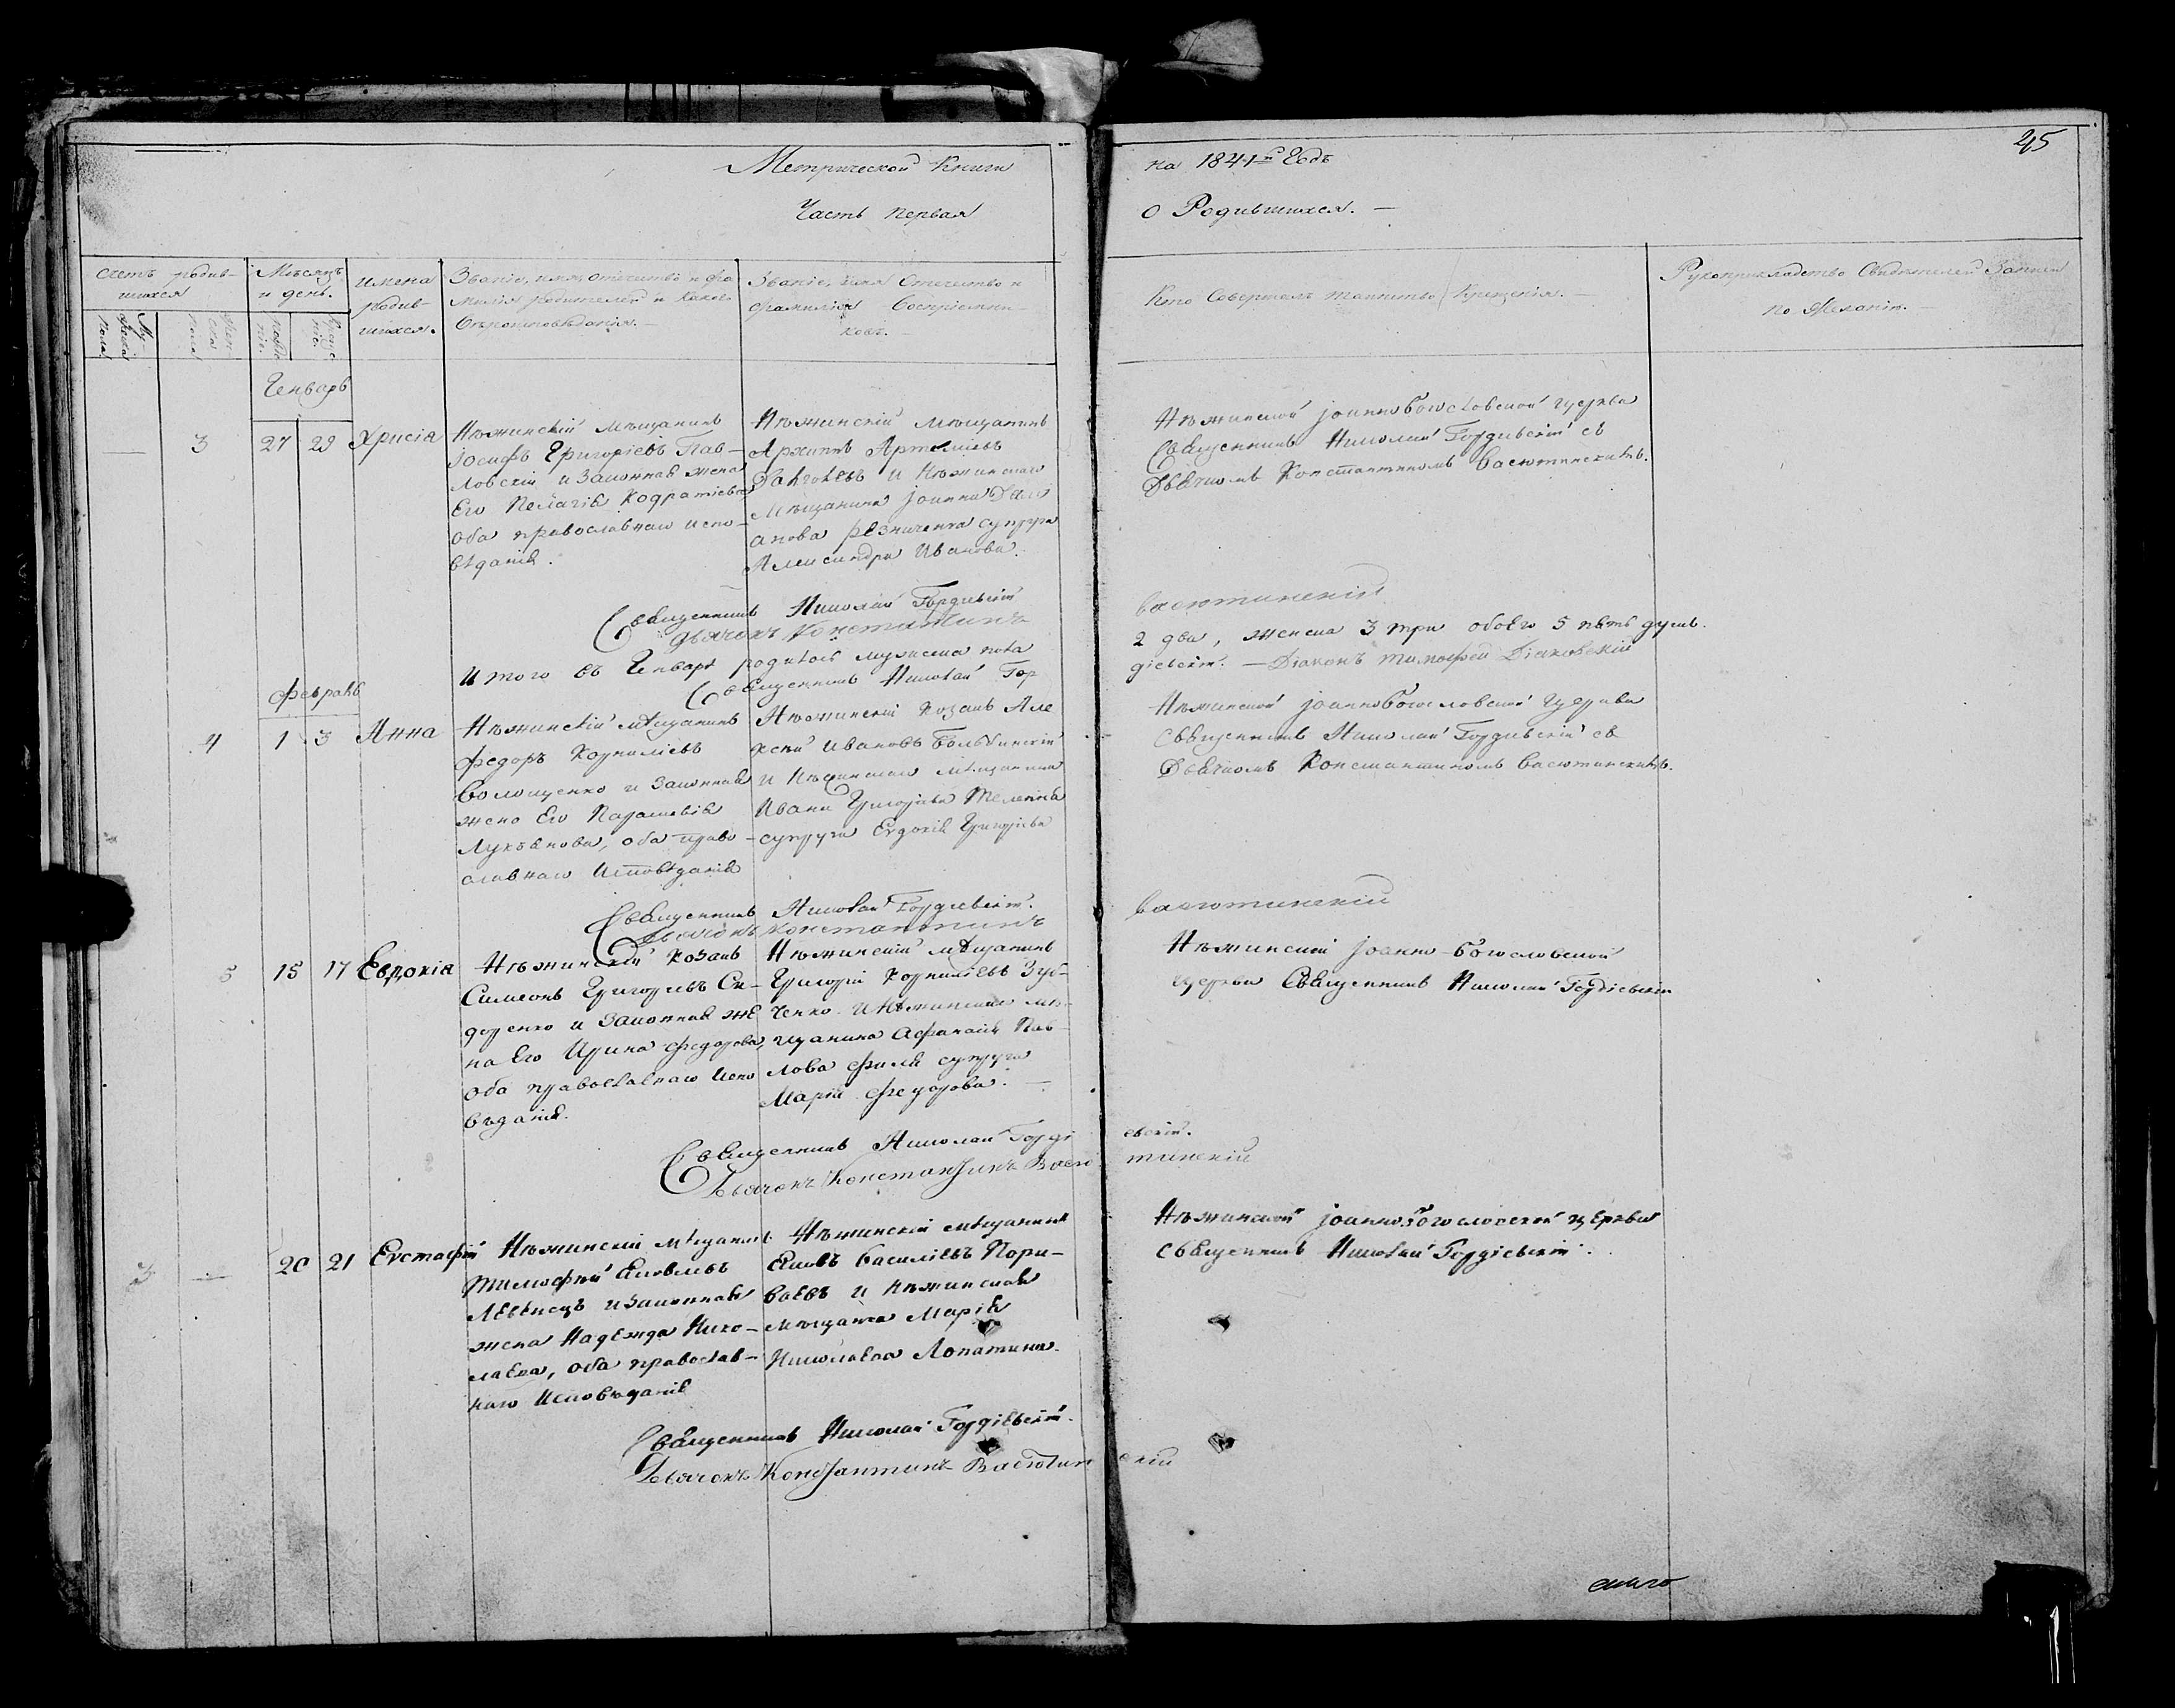 Метрической Книги
Часть первая
на 1841й Годъ
о Родившихся. —
45
Счетъ родив-
шихся
Мѣсяцъ
и день.
имена
родив-
шихся.
Званіе, имя, отечество и фа
милія родителей и какого
вѣроисповѣданія. —
Званіе, имя Отечество и
фамилія Воспріемни-
ковъ. —
Кто Совершалъ таинство Крещенія. —
Рукоприкладство Свидѣтелей Записи
по Желанію. —
Му-
жеска
пола
Жен-
ска
пола
Генварь
— 3 27 29 Хрисія
Нѣжинскій мѣщанинъ
Іосифъ Григоріевъ Пав-
ловскій и Законная жена
Его Пелагія Кодратіева
оба православнаго испо-
вѣданія.
Нѣжинскій мѣщанинъ
Архипъ Артеміевъ
и Нѣжинскаго
Мѣщанина Іоанна
анова Резниченка супруга
Александра Иванова.
Нѣжинской Іоанно Богословской церкви
Священникъ Николай Гордіевскій съ
Дьячкомъ Константиномъ Васютинскимъ.
Священникъ Николай Гордіевскій
Дьячокъ Константинъ Васютинскій
Итого въ Генварѣ родилось мужеска пола 2 два, женска 3 три обоего 5 пять душъ.
Священникъ Николай Гордіевскій. — Діаконъ Тимофей Діаковскій
февраль
4 1 3 Анна
Нѣжинскій мѣщанинъ
Федоръ Корниліевъ
Волощенко и Законная
жена Его Параскевія
Лукьянова, оба право-
славнаго Исповѣданія
Нѣжинскій Козакъ Але
ксѣй Ивановъ
и Нѣжинскаго мѣщанина
Ивана Григорьева
супруга Евдокія Григорьева
Нѣжинской Іоанно Богословской церкви
Священникъ Николай Гордіевскій съ
Дьячкомъ Константиномъ Васютинскимъ.
Священникъ Николай Гордіевскій.
Дьячокъ Константинъ Васютинскій
5 15 17 Евдокія
Нѣжинскій Козакъ
Симеонъ Григорьевъ Си-
доренко и Законная же
на Его Ирина Федорова,
оба православнаго Испо
вѣданія.
Нѣжинскій мѣщанинъ
Григорій Корниліевъ Зуб-
ченко и Нѣжинскаго мѣ-
щанина Афанасія Пав-
лова Филя супруга
Марія Федорова. —
Нѣжинской Іоанно-Богословской
церкви Священникъ Николай Гордіевскій
Священникъ Николай Гордіевскій.
Дьячокъ Константинъ Васютинскій
3 — 20 21 Евстафій
Нѣжинскій мѣщанинъ
Тимофѣй Яковлевъ
Левенецъ и Законная
жена Надежда Нико-
лаева, оба православ-
наго Исповѣданія
Нѣжинскій мѣщанинъ
Яковъ Василіевъ Пори-
ваевъ и Нѣжинская
мѣщанка Марія
Николаева Лопатина.
Нѣжинской Іоанно Богословской церкви
Священникъ Николай Гордіевскій.
Священникъ Николай Гордіевскій.
Дьячокъ Константинъ Васютинскій